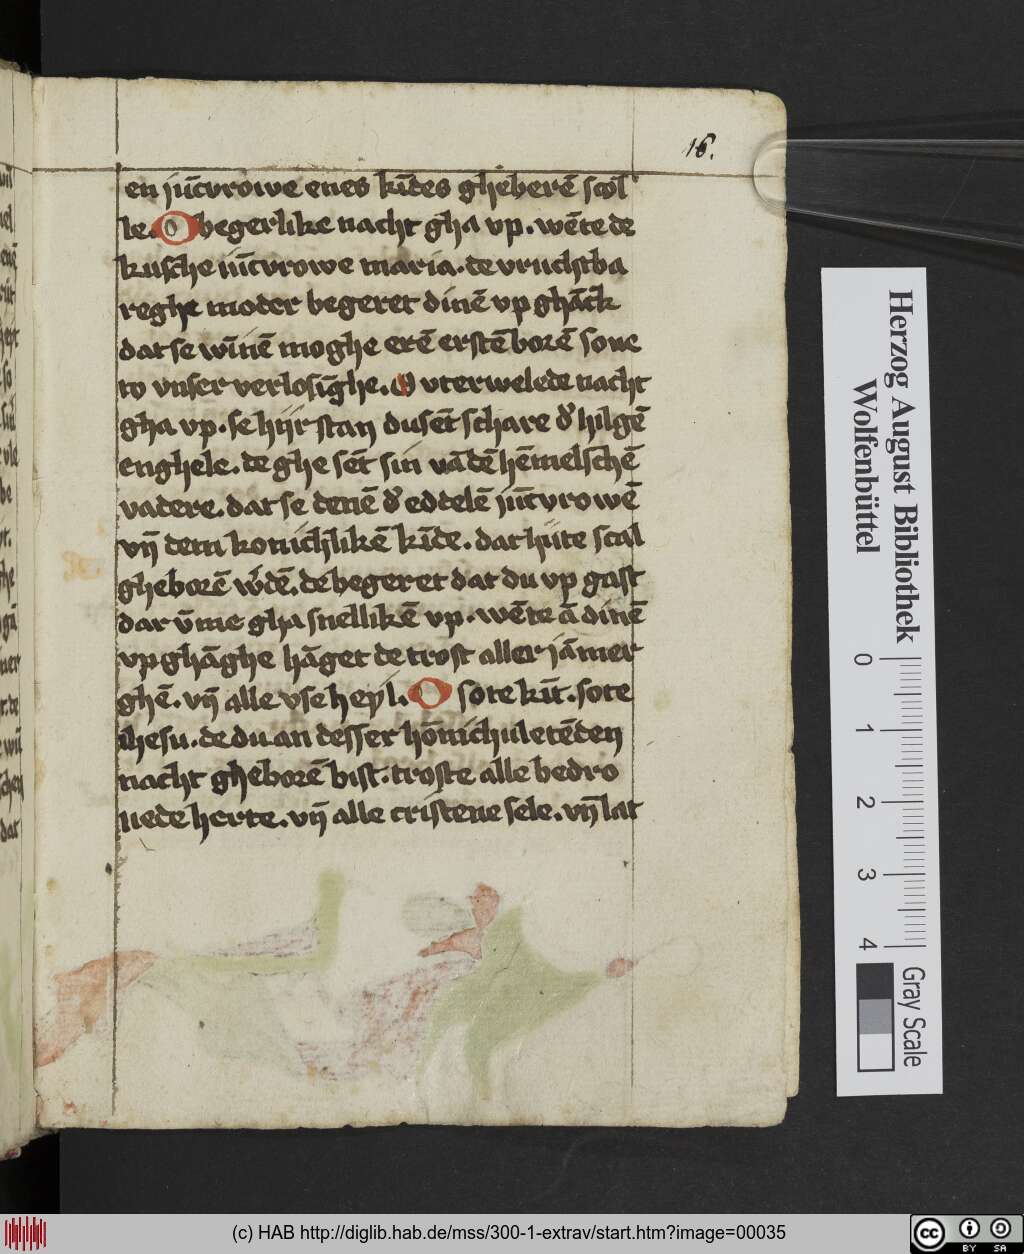 16.
en jūcvrowe enes kīdes gheberē scol
le. O begerlike nacht gha vp. wēte de
kusche iūcvrowe maria. de vruchtba
reghe moder begeret dinē vp ghāck
dat se wīnē moghe erē erstē borē sone
to vnser verlosīghe. O vterwelede nacht
gha vp. se hijr stan dusēt schare d' hilgē
enghele. de ghe sēt sin vā dē hēmelschē
vadere. dat se denē d' eddelē jūcvrowē
vn̄ dem konichlikē kīde. dat hüte scal
gheborē w'dē. de begeret dat du vp gast
dar v̄me gha snellikē vp. wēte ā dinē
vp ghāghe hāget de trost aller jāmer
ghē. vn̄ alle vse heyl. O sote kīt. sote
ihesu. de du an desser hōnichuletēden
nacht gheborē bist. troste alle bedro
uede herte. vn̄ alle cristene sele. vn̄ lat
Herzog August Bibliothek
Wolfenbüttel
0 1 2 3 4
Gray Scale
(c) HAB http://diglib.hab.de/mss/300-1-extrav/start.htm?image=00035
cc BY SA